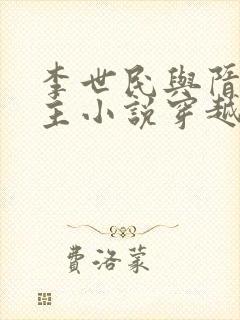 李世民與隋
主小說穿越
費洛蒙